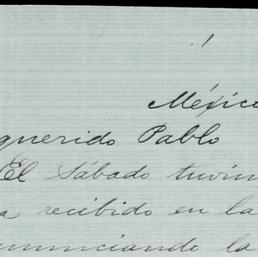 México
querido Pablo
El Sábado tuvim
a recibido en la
nunciando la